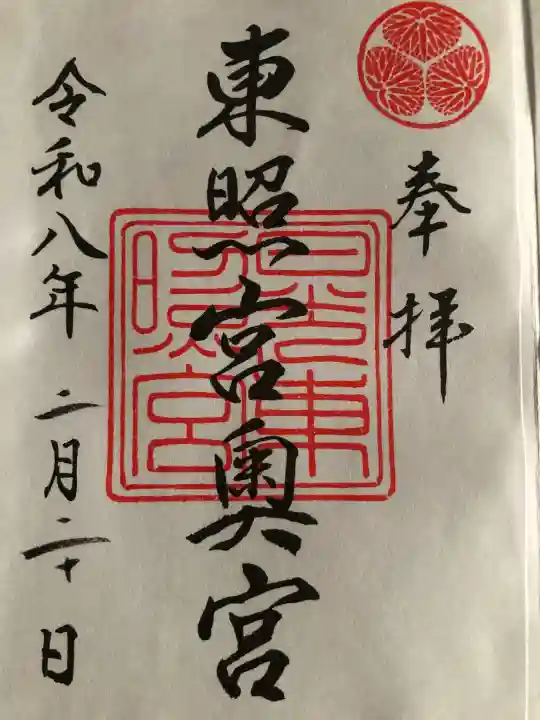 奉拝
東照宮奥宮
日光東照宮
令和八年 二月二十日